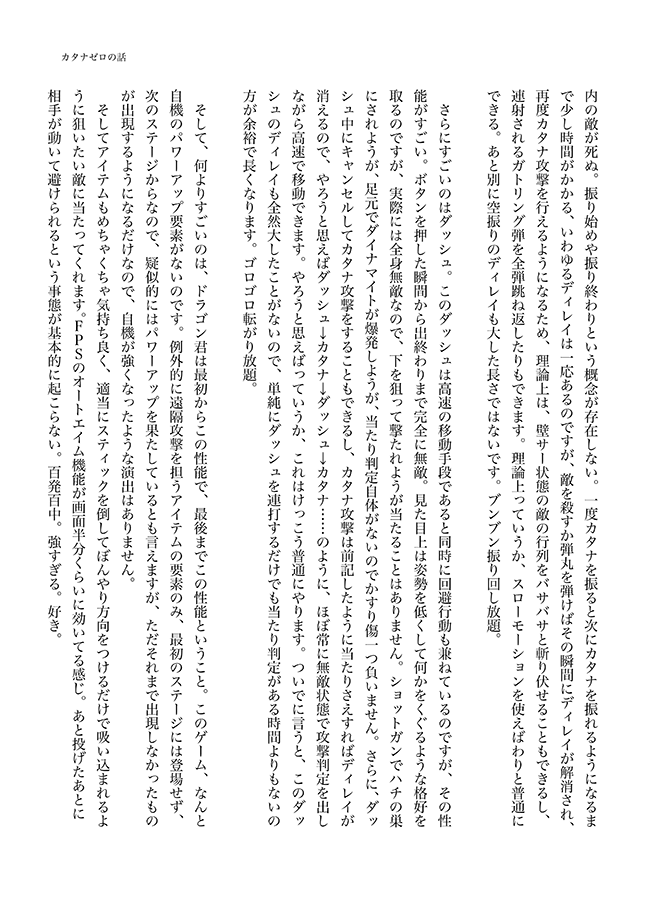 カタナゼロの話
内の敵が死ぬ。振り始めや振り終わりという概念が存在しない。一度カタナを振ると次にカタナを振れるようになるま
で少し時間がかかる、いわゆるディレイは一応あるのですが、敵を殺すか弾丸を弾けばその瞬間にディレイが解消され、
再度カタナ攻撃を行えるようになるため、理論上は、壁サー状態の敵の行列をバサバサと斬り伏せることもできるし、
連射されるガトリング弾を全弾跳ね返したりもできます。理論上っていうか、スローモーションを使えばわりと普通に
できる。あと別に空振りのディレイも大した長さではないです。ブンブン振り回し放題。
さらにすごいのはダッシュ。このダッシュは高速の移動手段であると同時に回避行動も兼ねているのですが、その性
能がすごい。ボタンを押した瞬間から出終わりまで完全に無敵。見た目上は姿勢を低くして何かをくぐるような格好を
取るのですが、実際には全身無敵なので、下を狙って撃たれようが当たることはありません。ショットガンでハチの巣
にされようが、足元でダイナマイトが爆発しようが、当たり判定自体がないのでかすり傷一つ負いません。さらに、ダッ
シュ中にキャンセルしてカタナ攻撃をすることもできるし、カタナ攻撃は前記したように当たりさえすればディレイが
消えるので、やろうと思えばダッシュ→カタナ→ダッシュ→カタナ……のように、ほぼ常に無敵状態で攻撃判定を出し
ながら高速で移動できます。やろうと思えばっていうか、これはけっこう普通にやります。ついでに言うと、このダッ
シュのディレイも全然大したことがないので、単純にダッシュを連打するだけでも当たり判定がある時間よりもないの
方が余裕で長くなります。ゴロゴロ転がり放題。
そして、何よりすごいのは、ドラゴン君は最初からこの性能で、最後までこの性能ということ。このゲーム、なんと
自機のパワーアップ要素がないのです。例外的に遠隔攻撃を担うアイテムの要素のみ、最初のステージには登場せず、
次のステージからなので、疑似的にはパワーアップを果たしているとも言えますが、ただそれまで出現しなかったもの
が出現するようになるだけなので、自機が強くなったような演出はありません。
そしてアイテムもめちゃくちゃ気持ち良く、適当にスティックを倒してぼんやり方向をつけるだけで吸い込まれるよ
うに狙いたい敵に当たってくれます。FPSのオートエイム機能が画面半分くらいに効いてる感じ。あと投げたあとに
相手が動いて避けられるという事態が基本的に起こらない。百発百中。強すぎる。好き。